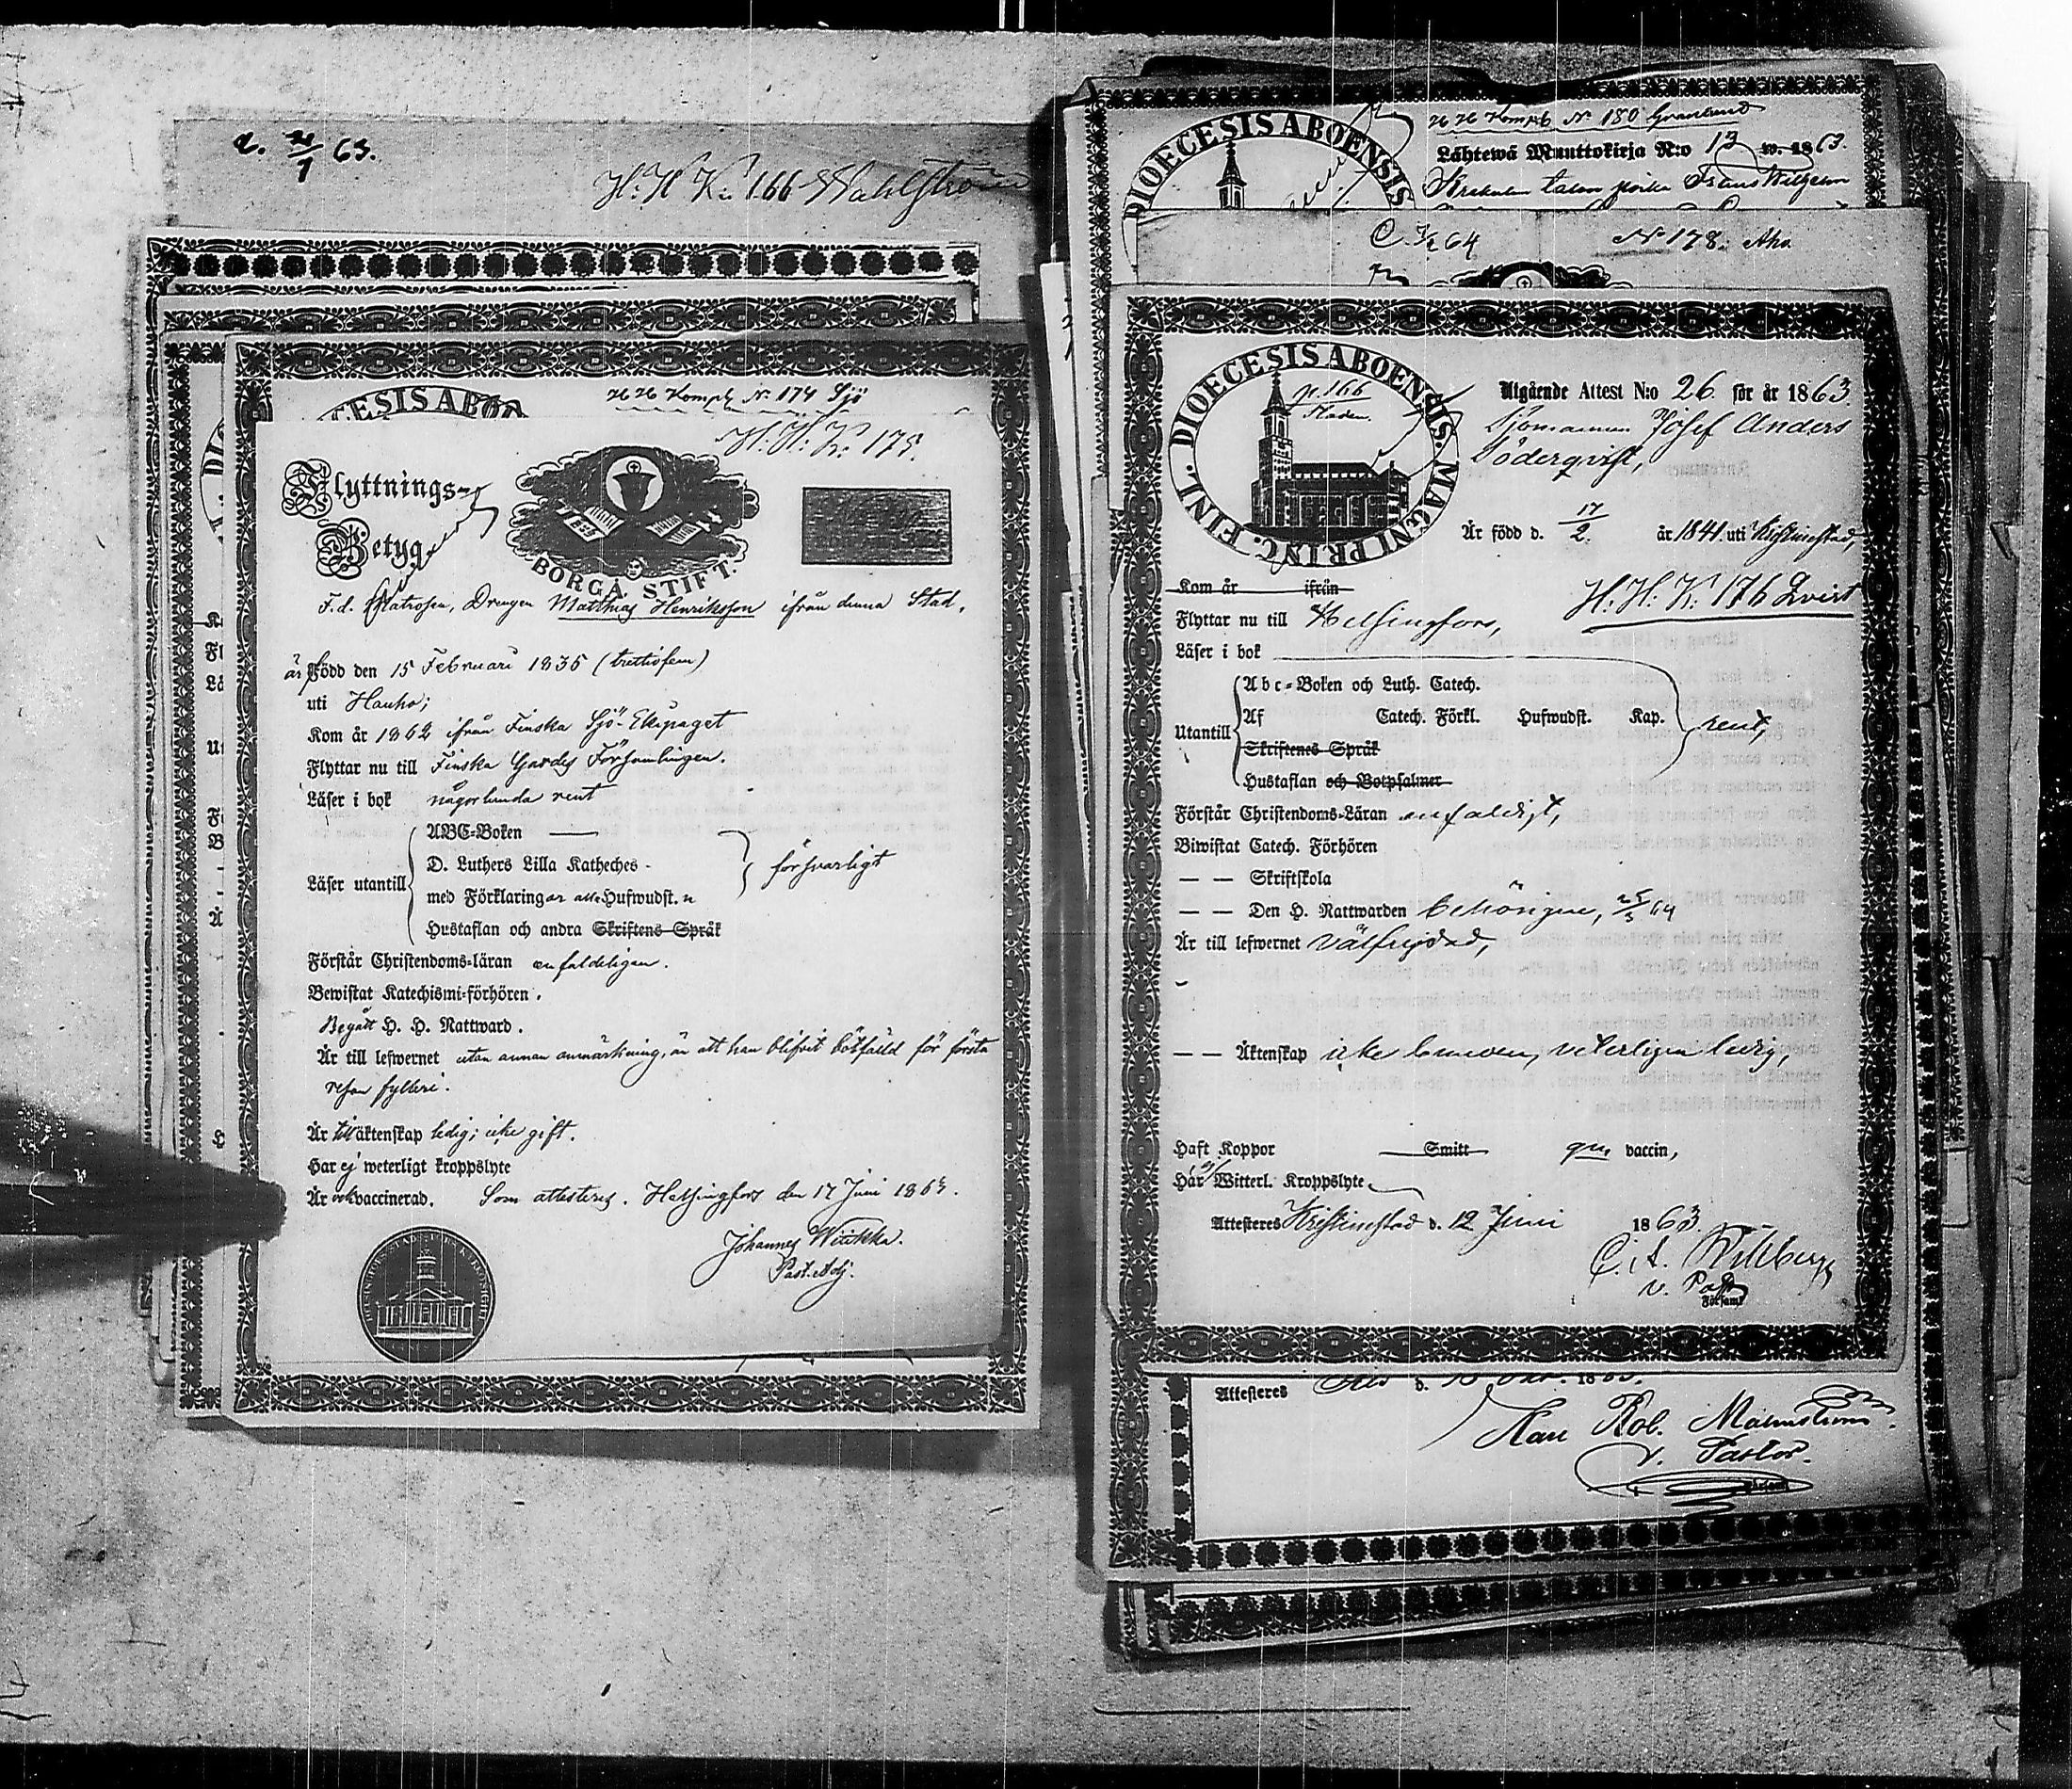 63.
H: H K: 166 Wahlström
CESIS ABO
H H Komp. N: 174 Sjö
H: H: K: 175.
Flyttnings-
Betyg
BORGÅ STIFT.
F.d. Matrosen, Drengen Matthias Henriksson ifrån denna Stad,
är Född den 15 Februari 1835 (trettiofem)
uti Hauho;
Kom år 1862 ifrån Finska Sjö-Ekipaget
Flyttar nu till Finska Gardes Församlingen.
Läser i bok någorlunda rent
Läser utantill
ABC-Boken
D. Luthers Lilla Katheches-
med Förklaringar Hufwudst.
Hustaflan och andra Skriftens Språk
försvarligt
Förstår Christendoms-läran enfaldeligen.
Bewistat Katechismi-förhören.
Begått H. H. Nattward.
Är till lefwernet utan annan anmärkning, än att han blifvit bötfälld för första
resan fylleri.
Är till äktenskap ledig; icke gift.
Har ej weterligt kroppslyte
Är ock vaccinerad. Som attesteras. Helsingfors den 17 Juni 1863.
Johannes Wiikka.
Past. Adj.
DIOECESIS ABOENSIS
H H Komp. N: 180 Granlund
Lähtewä Muuttokirja N:o 13 w. 1863.
Frans Wilhelm
C. 64
N: 178.
DIOECESIS ABOENSIS. MAGNI PRINC. FINL.
p. 166
Staden.
Utgående Attest N:o 26 för år 1863.
Sjömannen Josef Anders
Söderqvist,
Är född d. 17/2. år 1841 uti Kristinestad,
Kom år ifrån
H: H: K: 176 Qvist
Flyttar nu till Helsingfors,
Läser i bok
Utantill
Abc-Boken och Luth. Catech.
Af Catech. Förkl. Hufwudst. Kap.
Skriftenes Språk
Hustaflan och Botpsalmer
rent,
Förstår Christendoms-Läran enfaldigt,
Biwistat Catech. Förhören
— — Skriftskola
— — Den H. Nattwarden behörigen,
Är till lefwernet välfrejdad,
— — Äktenskap icke bunden, veterligen ledig,
Haft Koppor Smitt vaccin,
Har ej Witterl. Kroppslyte
Attesteres Kristinestad d. 12 Juni 1863.
v. Past
Församl
Attesteres
Karl Rob. Malmström.
v. Pastor.